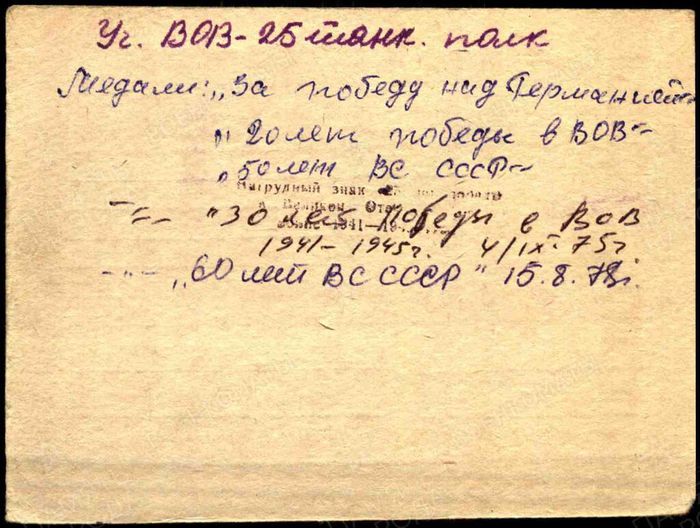 Уч. ВОВ - 25 танк. полк
Медали: „За победу над Германией"
„20 лет победы в ВОВ"
„50 лет ВС СССР"
Нагрудный знак
в Великой Отеч
войне 1941—19
-"- "30 лет Победы в ВОВ
1941 - 1945г. 4/IX. 75г
-"- „60 лет ВС СССР" 15.8.78г.